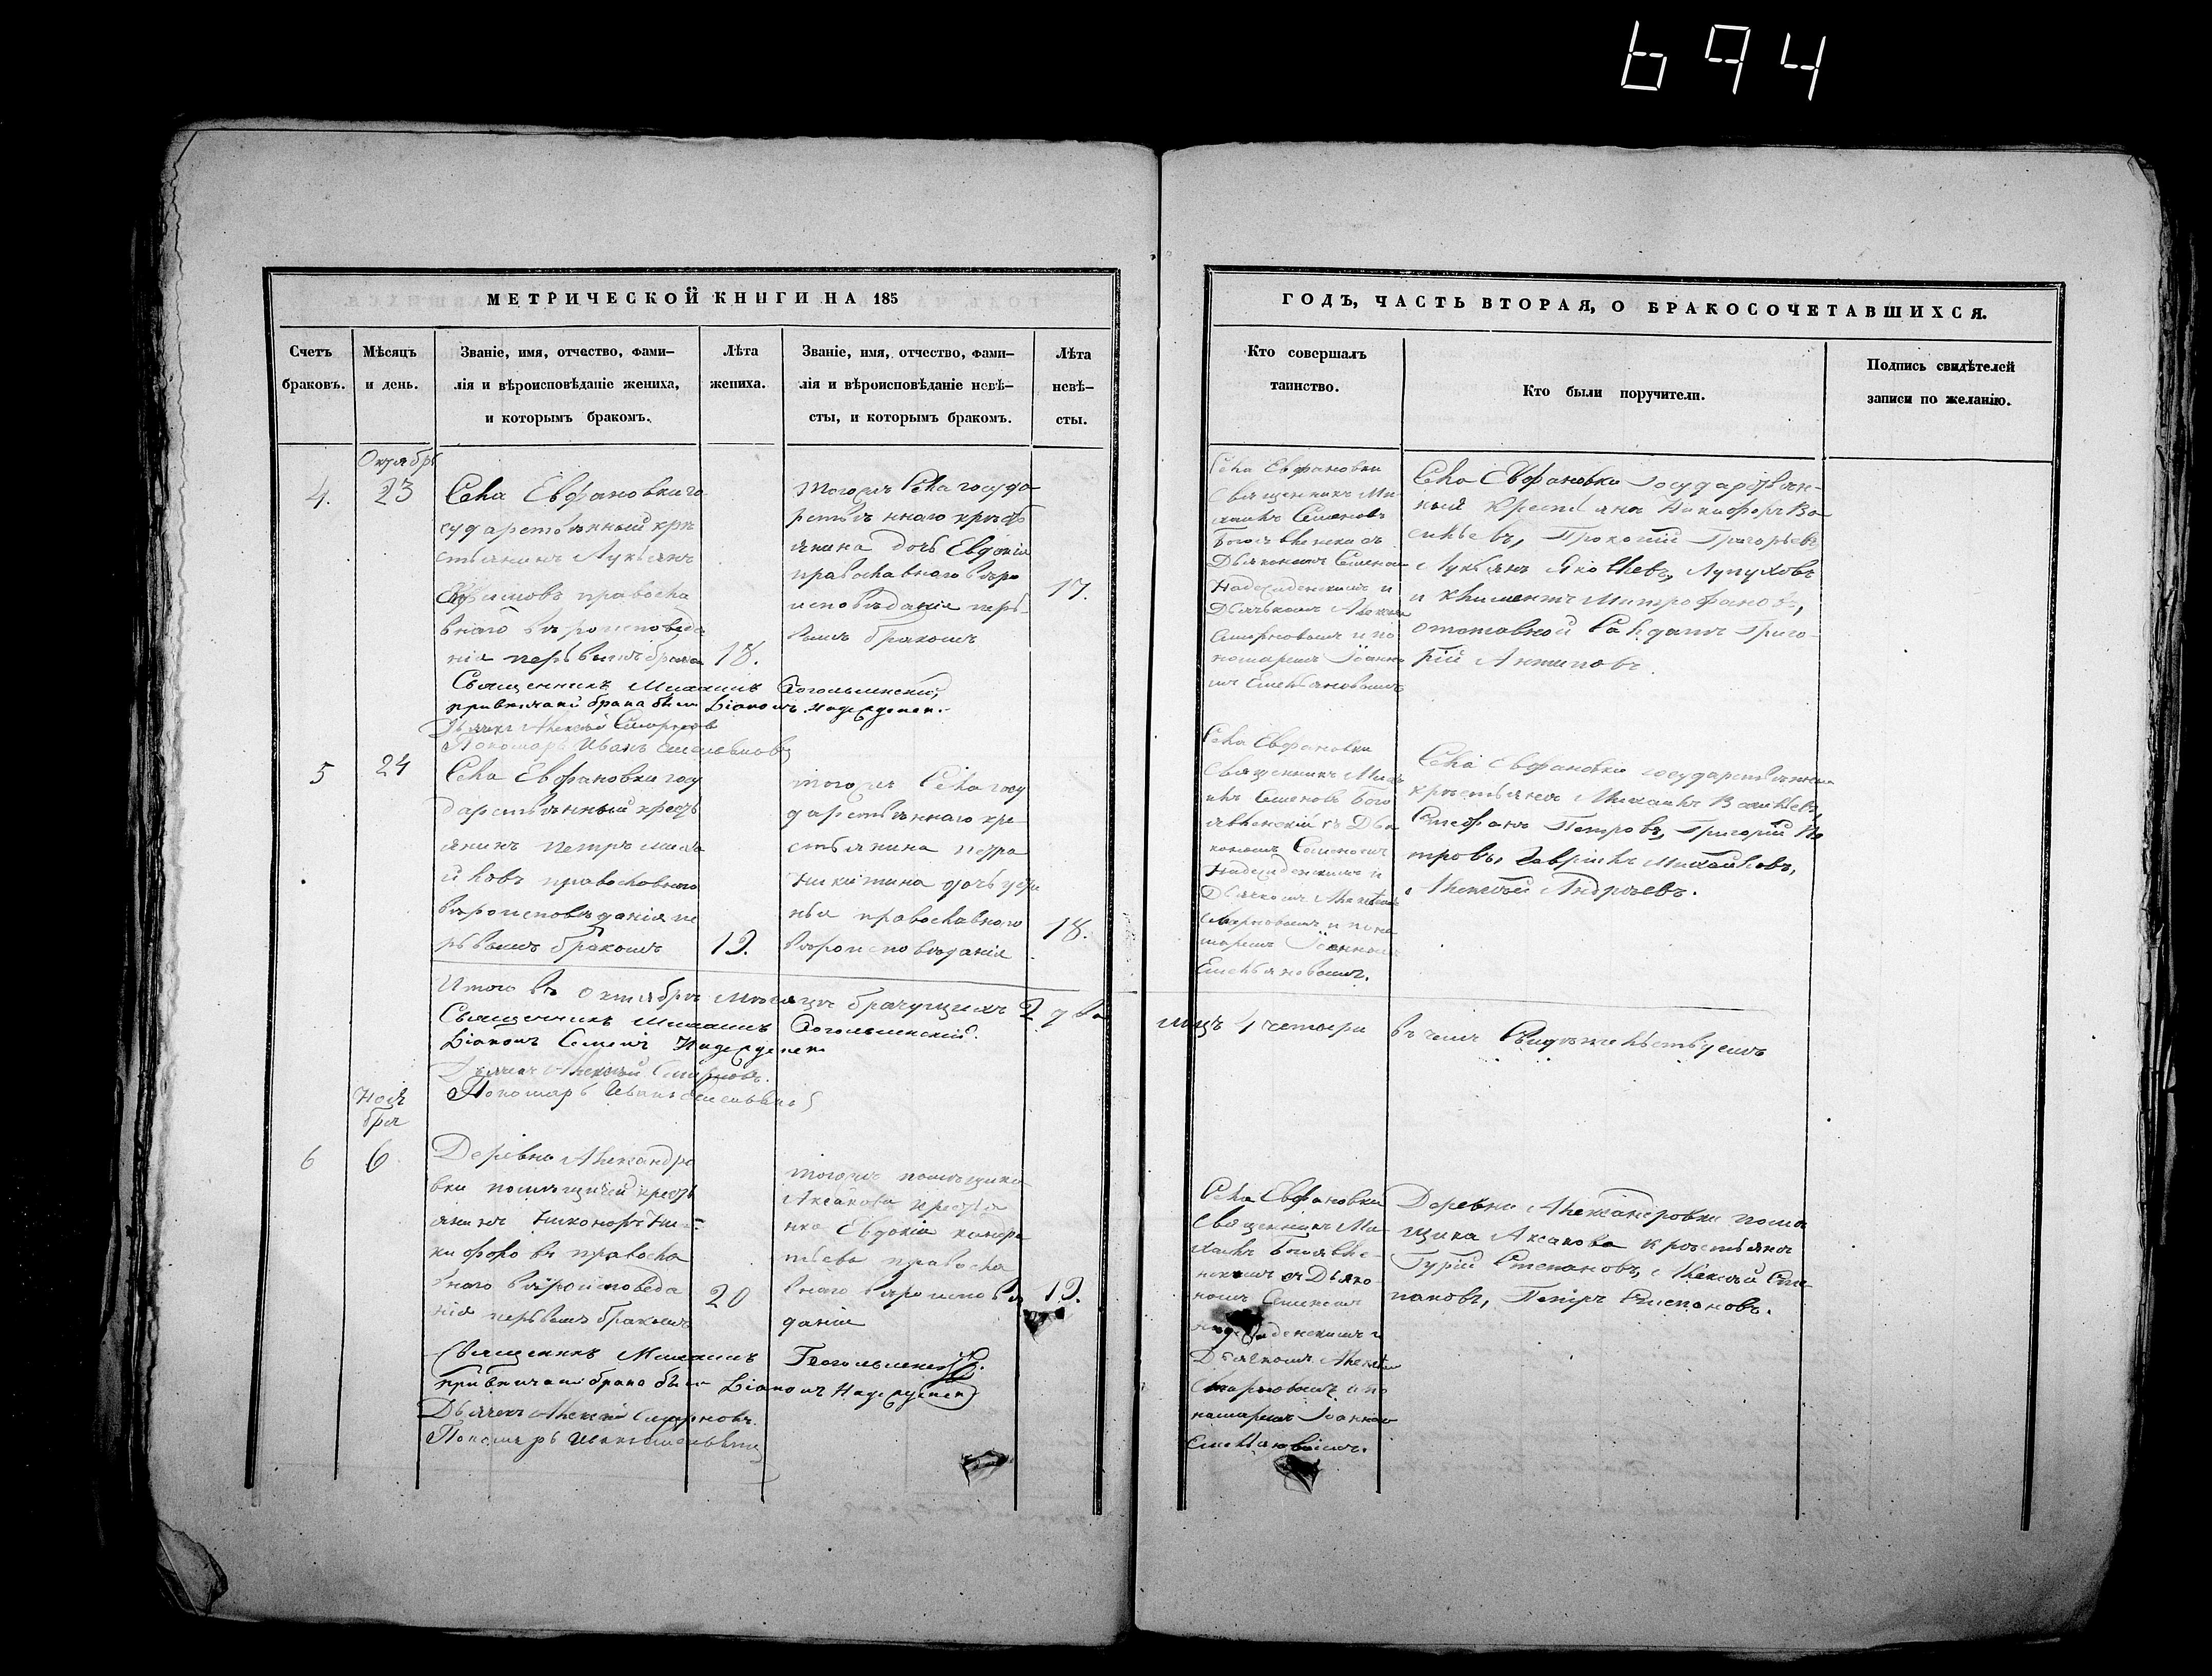 694
МЕТРИЧЕСКОЙ КНИГИ НА 185
ГОДЪ, ЧАСТЬ ВТОРАЯ, О БРАКОСОЧЕТАВШИХСЯ.
Счетъ
браковъ.
Мѣсяцъ
и день.
Званіе, имя, отчество, фами-
лія и вѣроисповѣданіе жениха,
и которымъ бракомъ.
Лѣта
жениха.
Званіе, имя, отчество, фами-
лія и вѣроисповѣданіе невѣ-
сты, и которымъ бракомъ.
Лѣта
невѣ-
сты.
Кто совершалъ
таинство.
Кто были поручители.
Подпись свидѣтелей
записи по желанію.
Октябрь
4.
23
Села Евфановки го
сударственный кре
стьянинъ Лукьянъ
православ
наго вѣроисповѣда
нія первымъ брако
18.
тогожъ Села госуда
рственнаго кресть
янина дочь Евдокія
православнаго вѣро
исповѣданія пер
вымъ бракомъ
17.
Села Евфановки
Священникъ Ми
хаилъ Семеновъ
Богоявленскій съ
Дьякономъ Семено
Надежденскимъ и
Дьячкомъ
Смирновымъ и по
номаремъ Іоанно
мъ Емельяновымъ
Села Евфановки государствен-
ный Крестьяна Никифоръ Ва
сильевъ, Прокопій Григорьевъ
Лукьянъ Яковлевъ,
и Климентъ Митрофановъ,
отставной Салдатъ Григо
рій Антиповъ.
Священникъ Михаилъ
привѣнчаніи брака былъ Діаконъ Надежденск.
Дьячекъ Алексѣй Смирновъ
Пономарь Иванъ Емельяновъ
5
24
Села Евфановки госу
дарственный кресть
янинъ Петръ Миха
йловъ православнаго
вѣроисповѣданія пе
рвымъ бракомъ
19.
тогожъ Села госу
дарственнаго кре
стьянина Петра
Никитина дочь
православнаго
вѣроисповѣданія
18.
Села Евфановки
Священникъ Миха
илъ Семеновъ Бого
явленскій съ Дья
кономъ Семеномъ
Надежденскимъ и
Дьячкомъ Алексѣемъ
Смирновымъ и поно
маремъ Іоанномъ
Емельяновымъ.
Села Евфановки государственны
крестьяна Михаилъ Васильевъ,
Стефанъ Петровъ, Григорій Пе
тровъ, Гаврилъ Михайловъ,
Алексѣй Андреевъ.
Итого въ октябрѣ мѣсяцѣ брачущихся 2 два
лицъ 4 четыри въ чемъ Свидѣтельствуемъ
Священникъ Михаилъ
Діаконъ Семенъ Надежденск
Дьячекъ Алексѣй Смирновъ.
Пономарь Иванъ Емельяновъ
Ноя
бря
6
6
Деревни Александро
вки помѣщичей кресть
янинъ Никоноръ Ни=
кифоровъ правосла
внаго вѣроисповѣда
нія первымъ бракомъ
20
тогожъ помѣщика
Аксакова крестья
нка Евдокія Кондра
тьева правосла
внаго вѣроисповѣ
даніи
19.
Села Евфановки
Священникъ Ми
хаилъ Богоявле
нскимъ съ Дьяко
номъ Семеномъ
Надежденскимъ и
Дьячкомъ Алексѣ
Смирновымъ и по
намаремъ Іоанном
Емельяновымъ.
Деревни Александровки помѣ
щика Аксакова Крестьяна
Гурій Степановъ, Алексѣй Сте
пановъ, Петръ Степановъ.
Священникъ Михаилъ
привѣнчаніи брака былъ Діаконъ Надежденск
Дьячекъ Алексѣй Смирновъ.
Пономарь Иванъ Емельяновъ